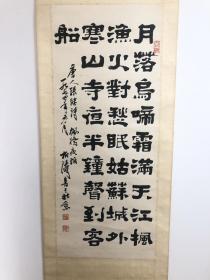 月落烏啼霜滿天江楓
漁火對愁眠姑蘇城外
寒山寺夜半鐘聲到客
船
唐人張繼詩楓橋夜泊